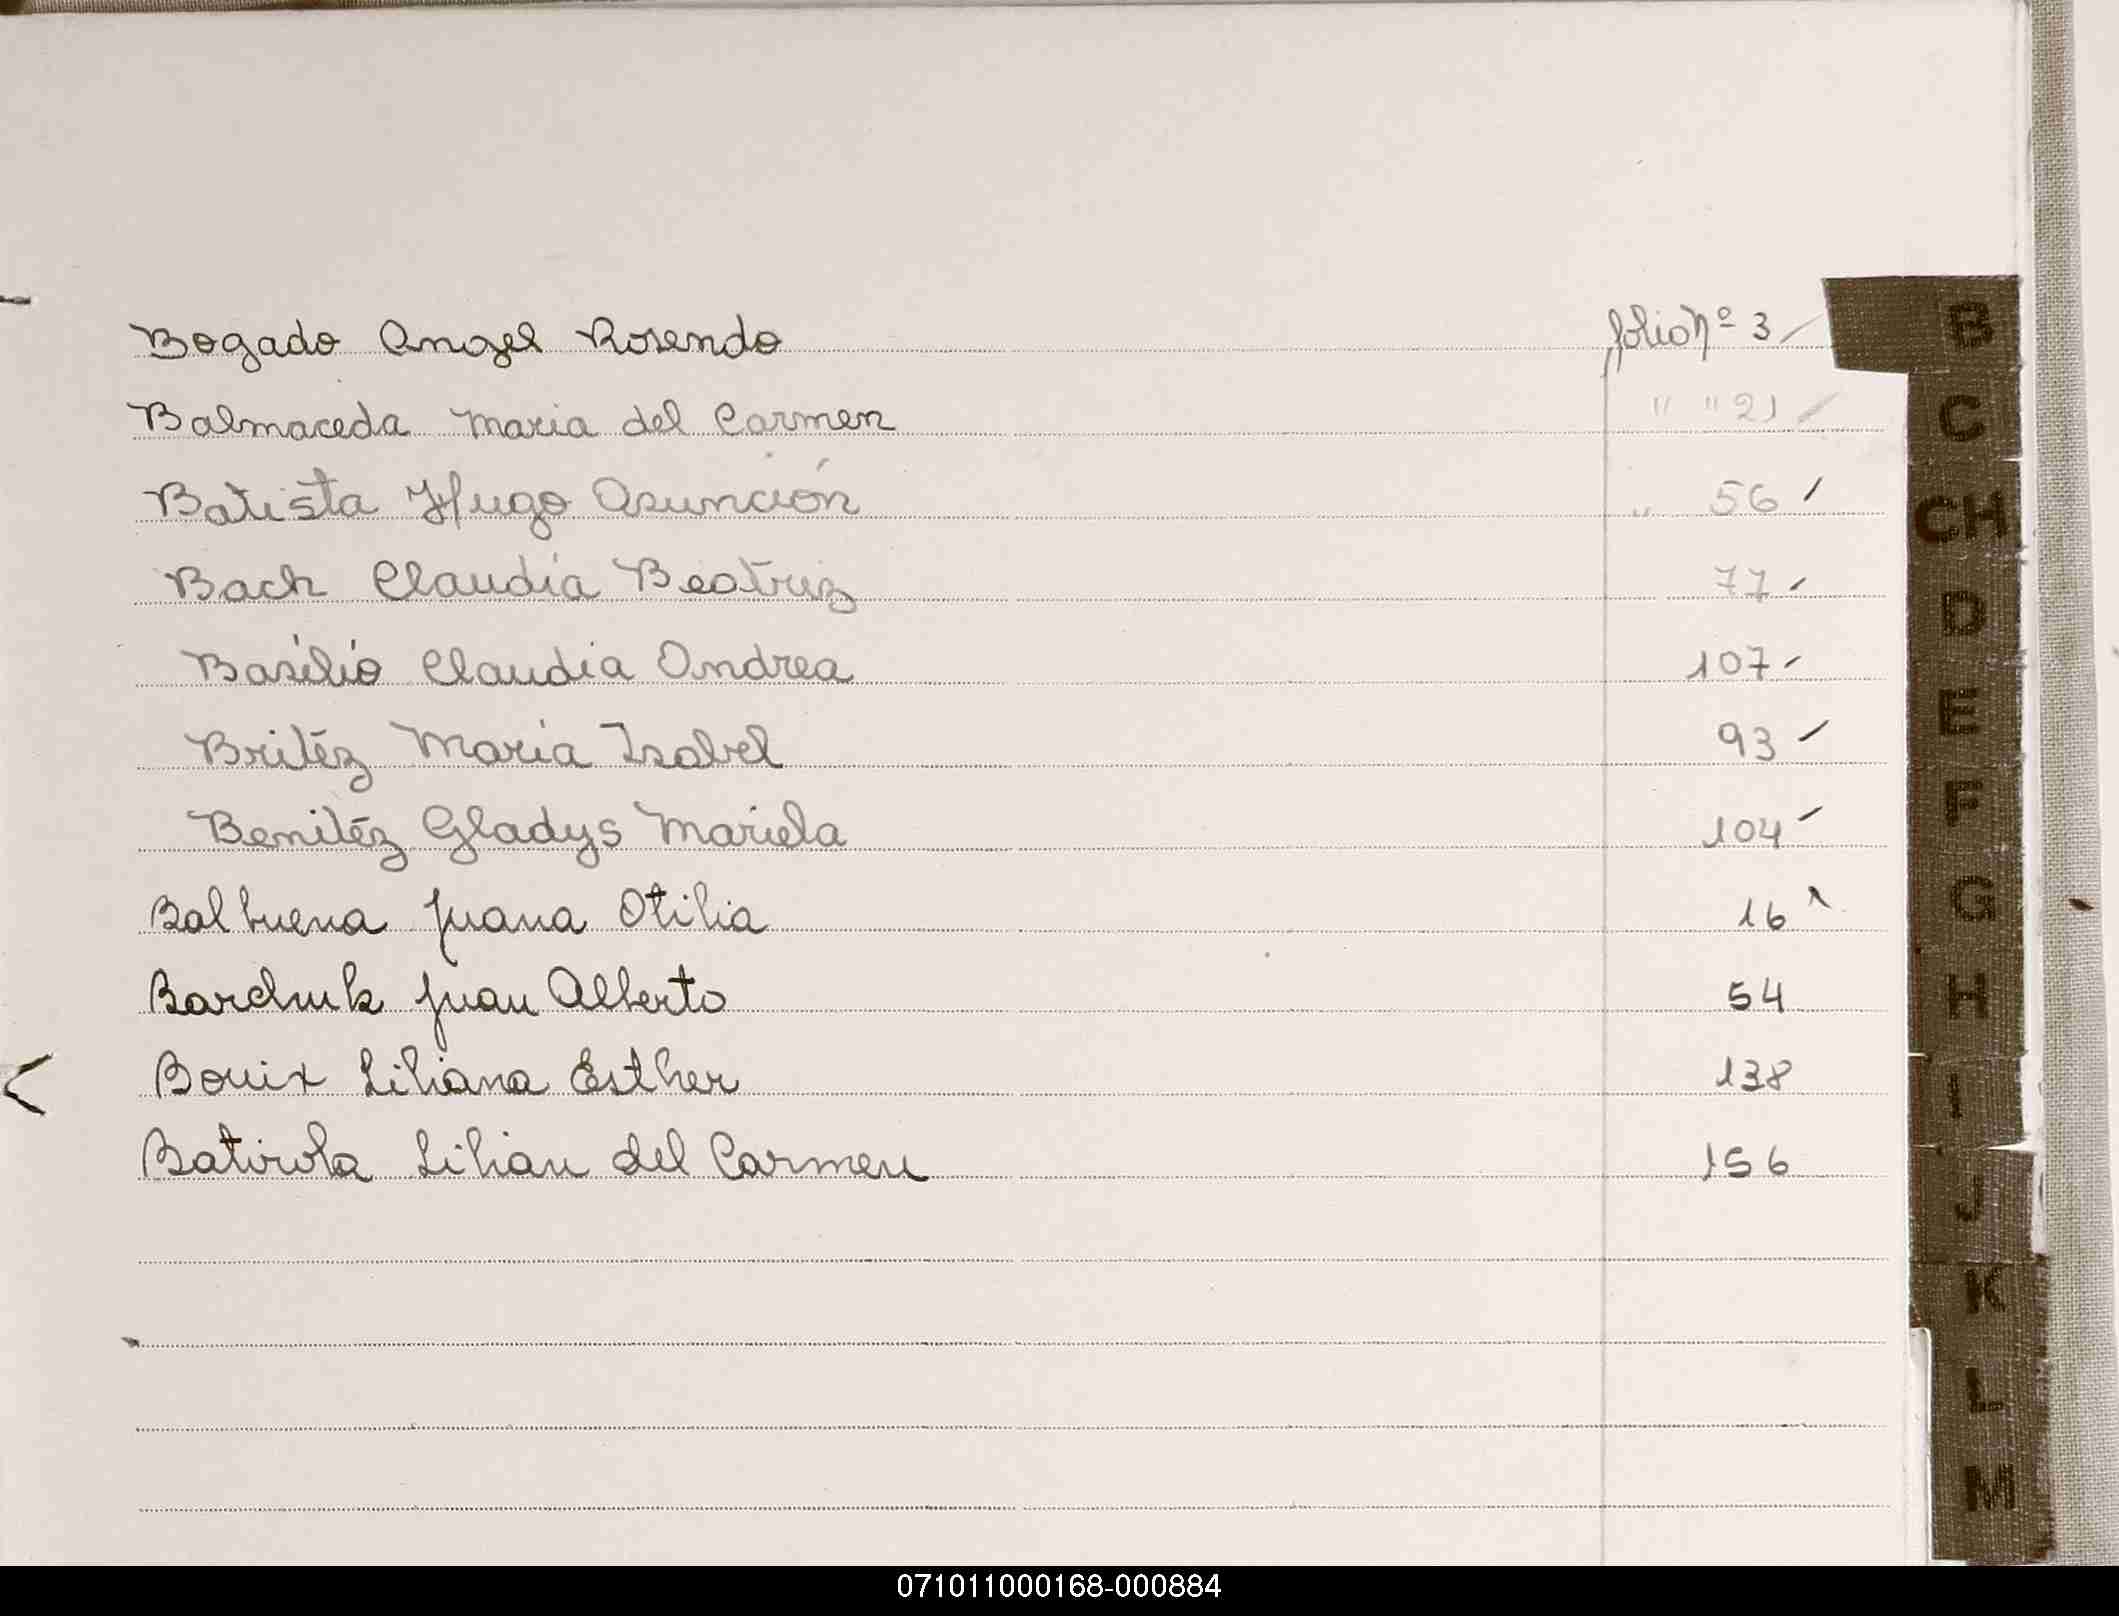 Bogado Angel Rosendo folio nº 3 /
Balmaceda Maria del Carmen " " 21 /
Batista Hugo Asunción " 56 /
Bach Claudia Beatriz 77 /
Basilio Claudia Andrea 107 /
Britéz Maria Isabel 93 /
Benitéz Gladys Mariela 104 /
Balbuena Juana Otilia 16
Juan Alberto 54
Bouix Liliana Esther 138
Batirola Lilian del Carmen 156
B
C
CH
D
E
F
G
H
I
J
K
L
M
071011000168-000884